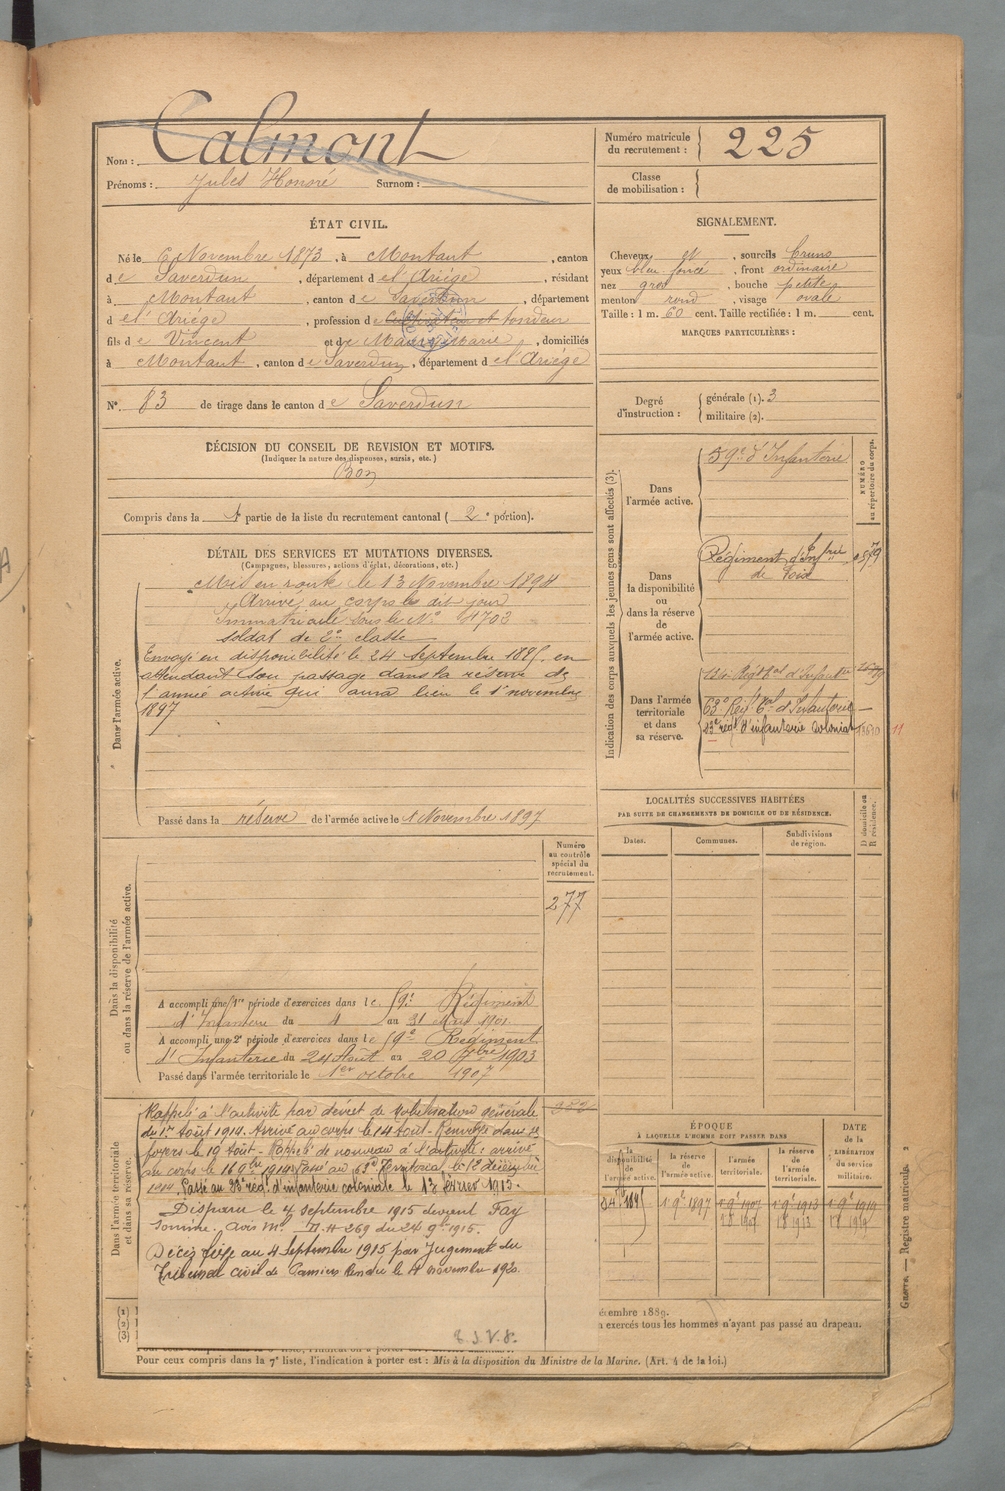 Nom : Calmont
Prénoms : Jules Honoré Surnom :
Numéro matricule du recrutement : 225
Classe de mobilisation :
ÉTAT CIVIL.
Né le 6 Novembre 1873, à Montaut, canton
de Saverdun, département de l'Ariége, résidant
à Montaut, canton de Saverdun, département
de l'Ariége, profession de Cultivateur et tondeur
fils de Vincent et de Marie, domiciliés
à Montaut, canton de Saverdun, département de l'Ariége
N° 83 de tirage dans le canton de Saverdun
SIGNALEMENT.
Cheveux et, sourcils bruns
yeux bleu foncé, front ordinaire
nez gros, bouche petite
menton rond, visage ovale
Taille : 1 m. 60 cent. Taille rectifiée : 1 m. cent.
MARQUES PARTICULIÈRES :
Degré d'instruction : générale (1). 3
militaire (2).
DÉCISION DU CONSEIL DE REVISION ET MOTIFS.
(Indiquer la nature des dispenses, sursis, etc.)
Bon
Compris dans la 1e partie de la liste du recrutement cantonal ( 2e portion).
DÉTAIL DES SERVICES ET MUTATIONS DIVERSES.
(Campagnes, blessures, actions d'éclat, décorations, etc.)
Dans l'armée active.
Mis en route le 13 Novembre 1894
Arrivé au corps le dit jour
Immatriculé sous le N° 4703
soldat de 2e classe
Envoyé en disponibilité le 24 septembre 1895, en
attendant son passage dans la réserve de
l'armée active qui aura lieu le 1er novembre
1897
Passé dans la réserve de l'armée active le 1 Novembre 1897
Indication des corps auxquels les jeunes gens sont affectés (3).
NUMÉRO au répertoire du corps.
Dans l'armée active.
59e d'Infanterie
Dans la disponibilité ou dans la réserve de l'armée active.
Régiment d'Infrie
de Foix
Dans l'armée territoriale et dans sa réserve.
134e Régt tal d'Infanterie
63e Regt tal d'Infanterie
33e régt d'infanterie coloniale
11
LOCALITÉS SUCCESSIVES HABITÉES
PAR SUITE DE CHANGEMENTS DE DOMICILE OU DE RÉSIDENCE.
Dates. Communes. Subdivisions de région. D domicile ou R résidence.
Dans la disponibilité ou dans la réserve de l'armée active.
Numéro au contrôle spécial du recrutement.
277
A accompli une 1re période d'exercices dans le 59e Régiment
d'Infanterie du 4 au 31 Mai 1901
A accompli une 2e période d'exercices dans le 59e Régiment
d'Infanterie du 24 Août au 20 7bre 1903
Passé dans l'armée territoriale le 1er octobre 1907
Dans l'armée territoriale et dans sa réserve.
Rappelé à l'activité par décret de Mobilisation générale
du 1er Août 1914. Arrivé au corps le 14 Août - Renvoyé dans se
foyers le 19 Août - Rappelé de nouveau à l'activité : arrivé
au corps le 16 9bre 1914. Passé au 63e Territorial le 12 décembre
1914. Passé au 33e régt d'infanterie coloniale le 13 février 1915.
Disparu le 4 septembre 1915 devant Fay
Somme. Avis Ml. D.H 269 du 24 9bre 1915.
Décès fixé au 4 Septembre 1915 par Jugement du
Tribunal civil de Pamiers Rendu le 4 novembre 1920.
ÉPOQUE
À LAQUELLE L'HOMME DOIT PASSER DANS
la disponibilité de l'armée active.
la réserve de l'armée active.
l'armée territoriale.
la réserve de l'armée territoriale.
DATE de la LIBÉRATION du service militaire.
1 9bre 1897 1 9bre 1907 1 9bre 1913 1 9bre 1919
(1)
(2)
(3)
écembre 1889.
a exercés tous les hommes n'ayant pas passé au drapeau.
Pour ceux compris dans la 7e liste, l'indication à porter est : Mis à la disposition du Ministre de la Marine. (Art. 4 de la loi.)
Guerre. — Registre matricule. 2